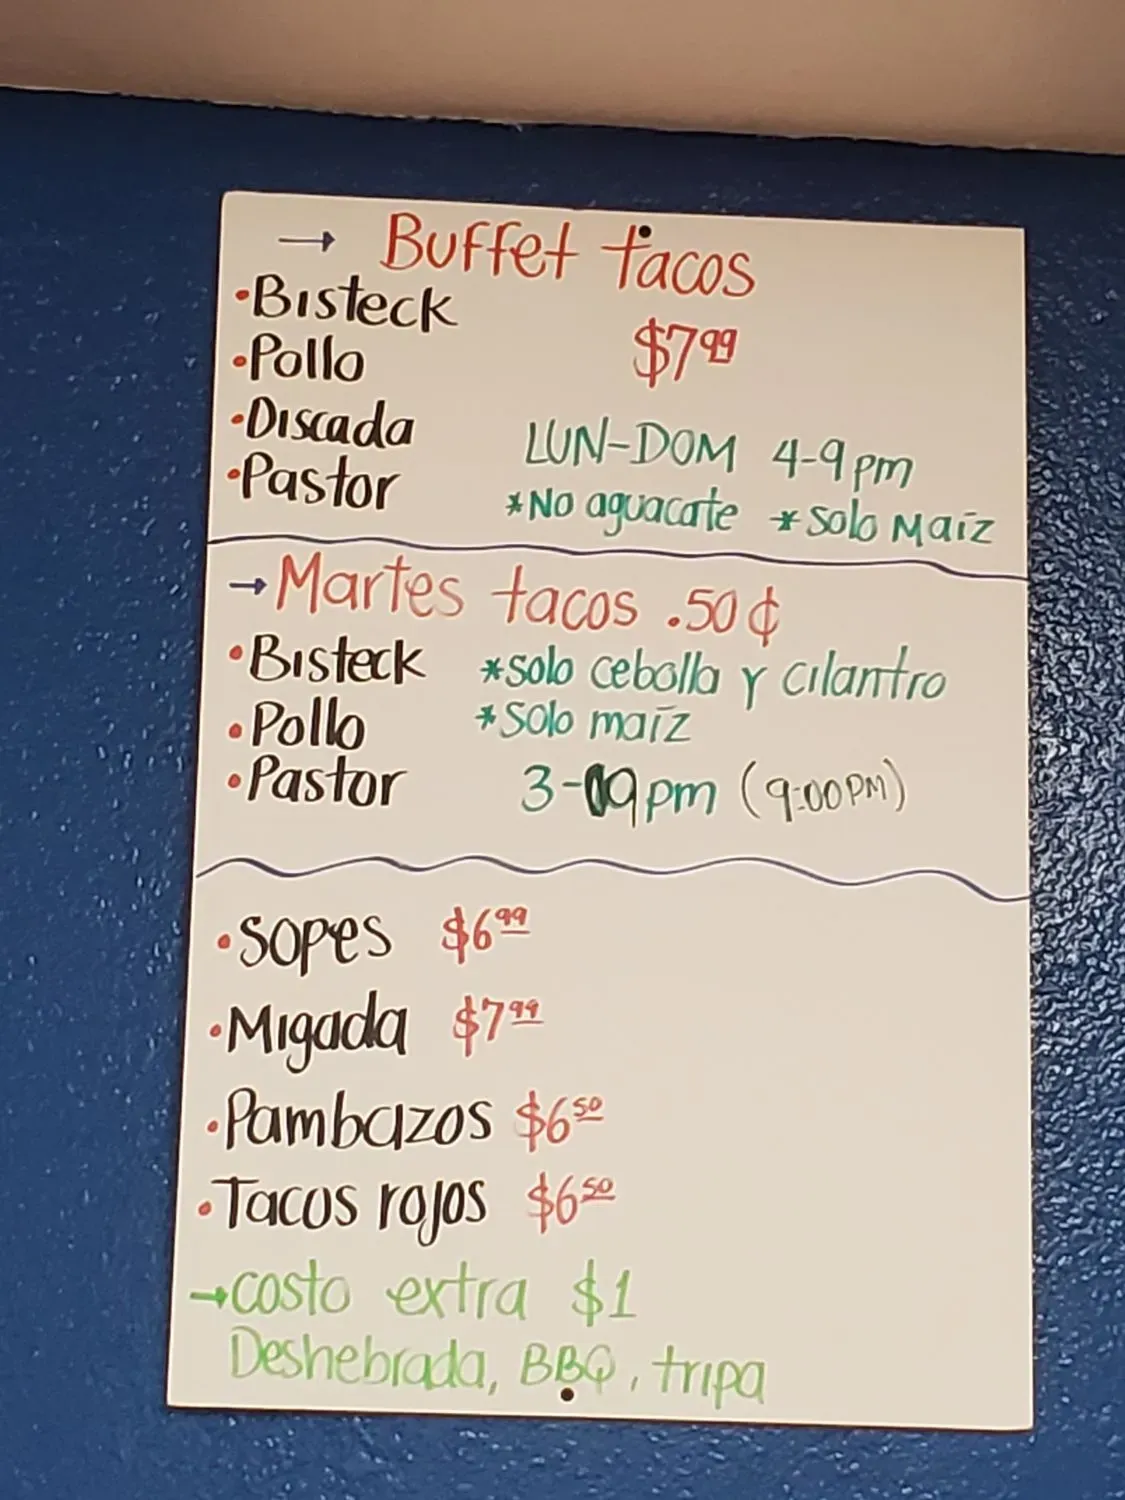 → Buffet tacos
•Bisteck
$7.99
•Pollo
•Discada
LUN-DOM 4-9pm
•Pastor
*No aguacate *Solo Maíz
→Martes tacos .50¢
•Bisteck *solo cebolla y cilantro
•Pollo *Solo maíz
•Pastor 3-9pm (9:00PM)
•Sopes $6.99
•Migada $7.99
•Pambazos $6.50
•Tacos rojos $6.50
→costo extra $1
Deshebrada, BBQ, tripa